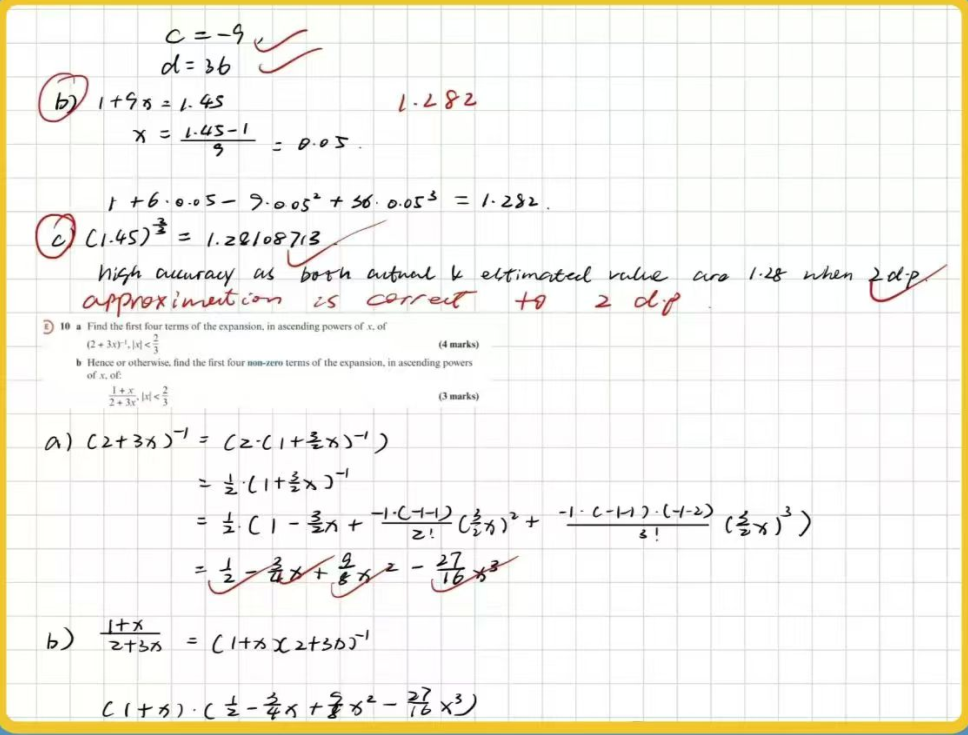 c = -9
d = 36
b) 1+9x = 1.45 1.282
x = (1.45-1)/9 = 0.05.
1 + 6·0.05 - 9·0.05² + 36·0.05³ = 1.282.
c) (1.45)^(2/3) = 1.28108713
high accuracy as both actual & estimated value are 1.28 when 2 d.p
approximation is correct to 2 d.p.
E 10 a Find the first four terms of the expansion, in ascending powers of x, of
(2 + 3x)⁻¹, |x| < 2/3 (4 marks)
b Hence or otherwise, find the first four non-zero terms of the expansion, in ascending powers
of x, of:
(1 + x)/(2 + 3x), |x| < 2/3 (3 marks)
a) (2+3x)⁻¹ = (2·(1+3/2x)⁻¹)
= 1/2·(1+3/2x)⁻¹
= 1/2·(1 - 3/2x + -1·(-1-1)/2! (3/2x)² + -1·(-1-1)·(-1-2)/3! (3/2x)³)
= 1/2 - 3/4x + 9/8x² - 27/16x³
b) (1+x)/(2+3x) = (1+x)(2+3x)⁻¹
(1+x)·(1/2 - 3/4x + 9/8x² - 27/16x³)